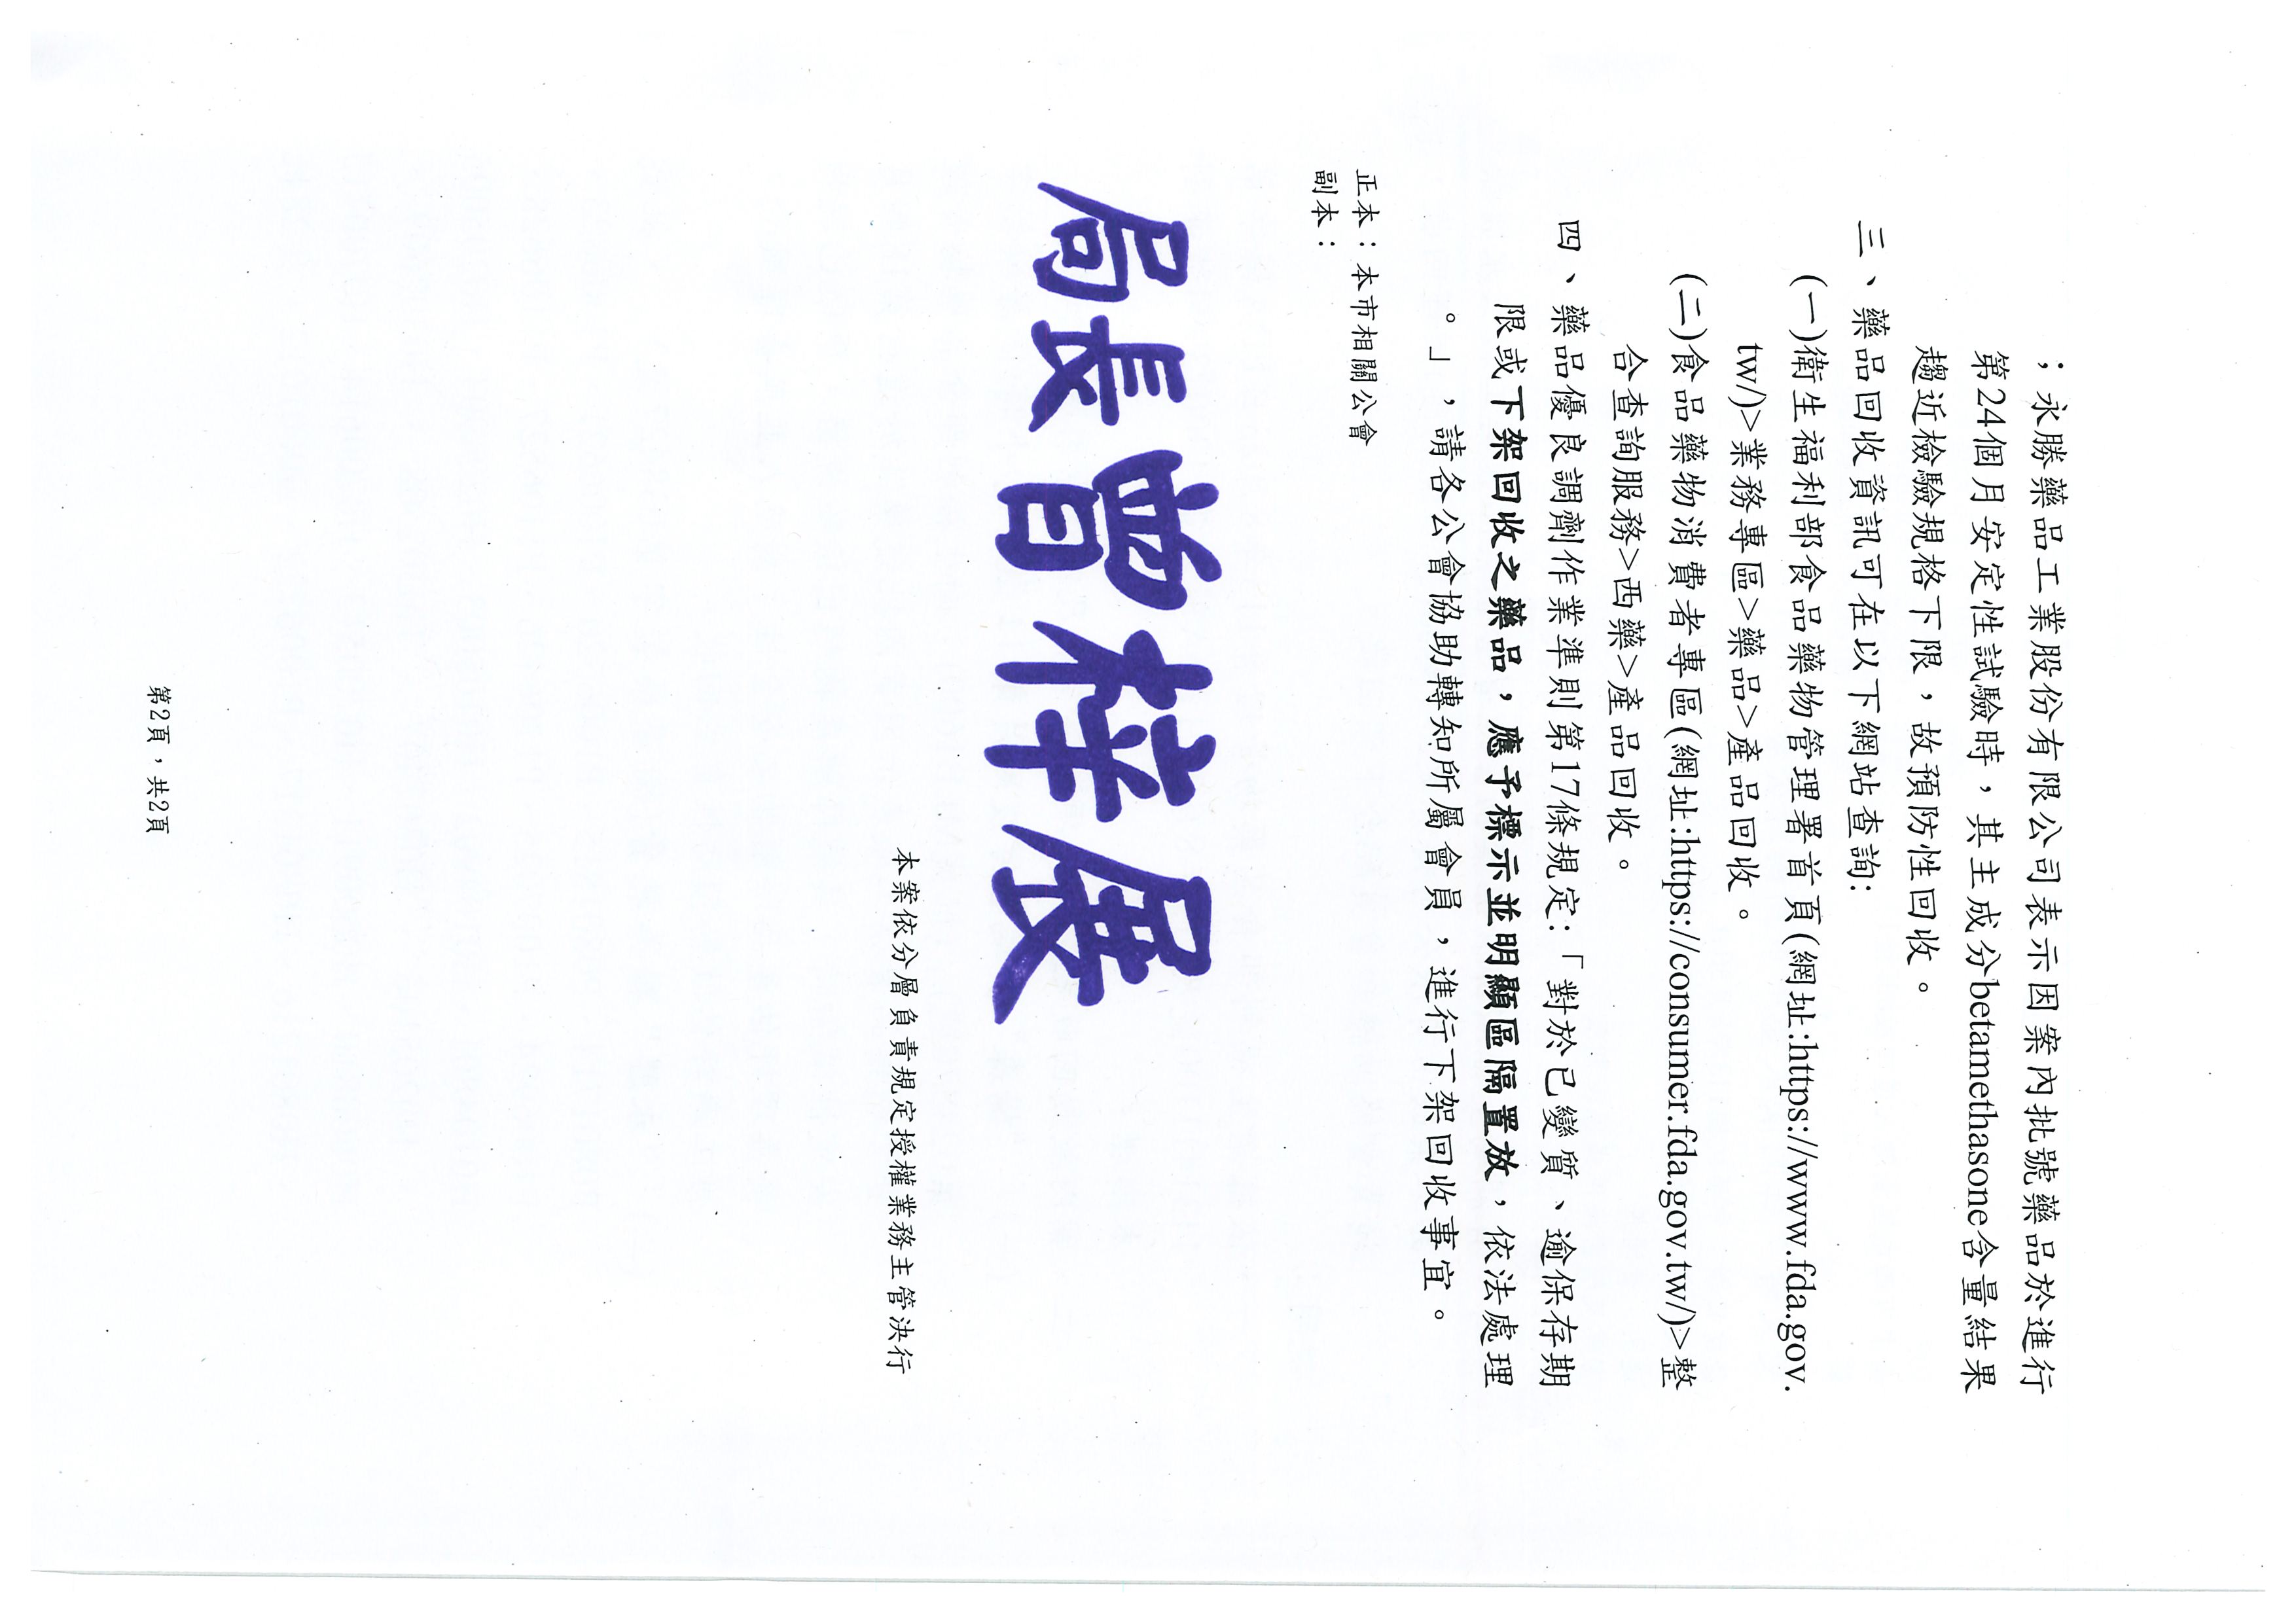 ；永勝藥品工業股份有限公司表示因案內批號藥品於進行
第24個月安定性試驗時，其主成分betamethasone含量結果
趨近檢驗規格下限，故預防性回收。
三、藥品回收資訊可在以下網站查詢:
(一)衛生福利部食品藥物管理署首頁(網址:https://www.fda.gov.
tw/)>業務專區>藥品>產品回收。
(二)食品藥物消費者專區(網址:https://consumer.fda.gov.tw/)>整
合查詢服務>西藥>產品回收。
四、藥品優良調劑作業準則第17條規定:「對於已變質、逾保存期
限或下架回收之藥品，應予標示並明顯區隔置放，依法處理
。」，請各公會協助轉知所屬會員，進行下架回收事宜。
正本：本市相關公會
副本：
局長曾梓展
本案依分層負責規定授權業務主管決行
第2頁，共2頁